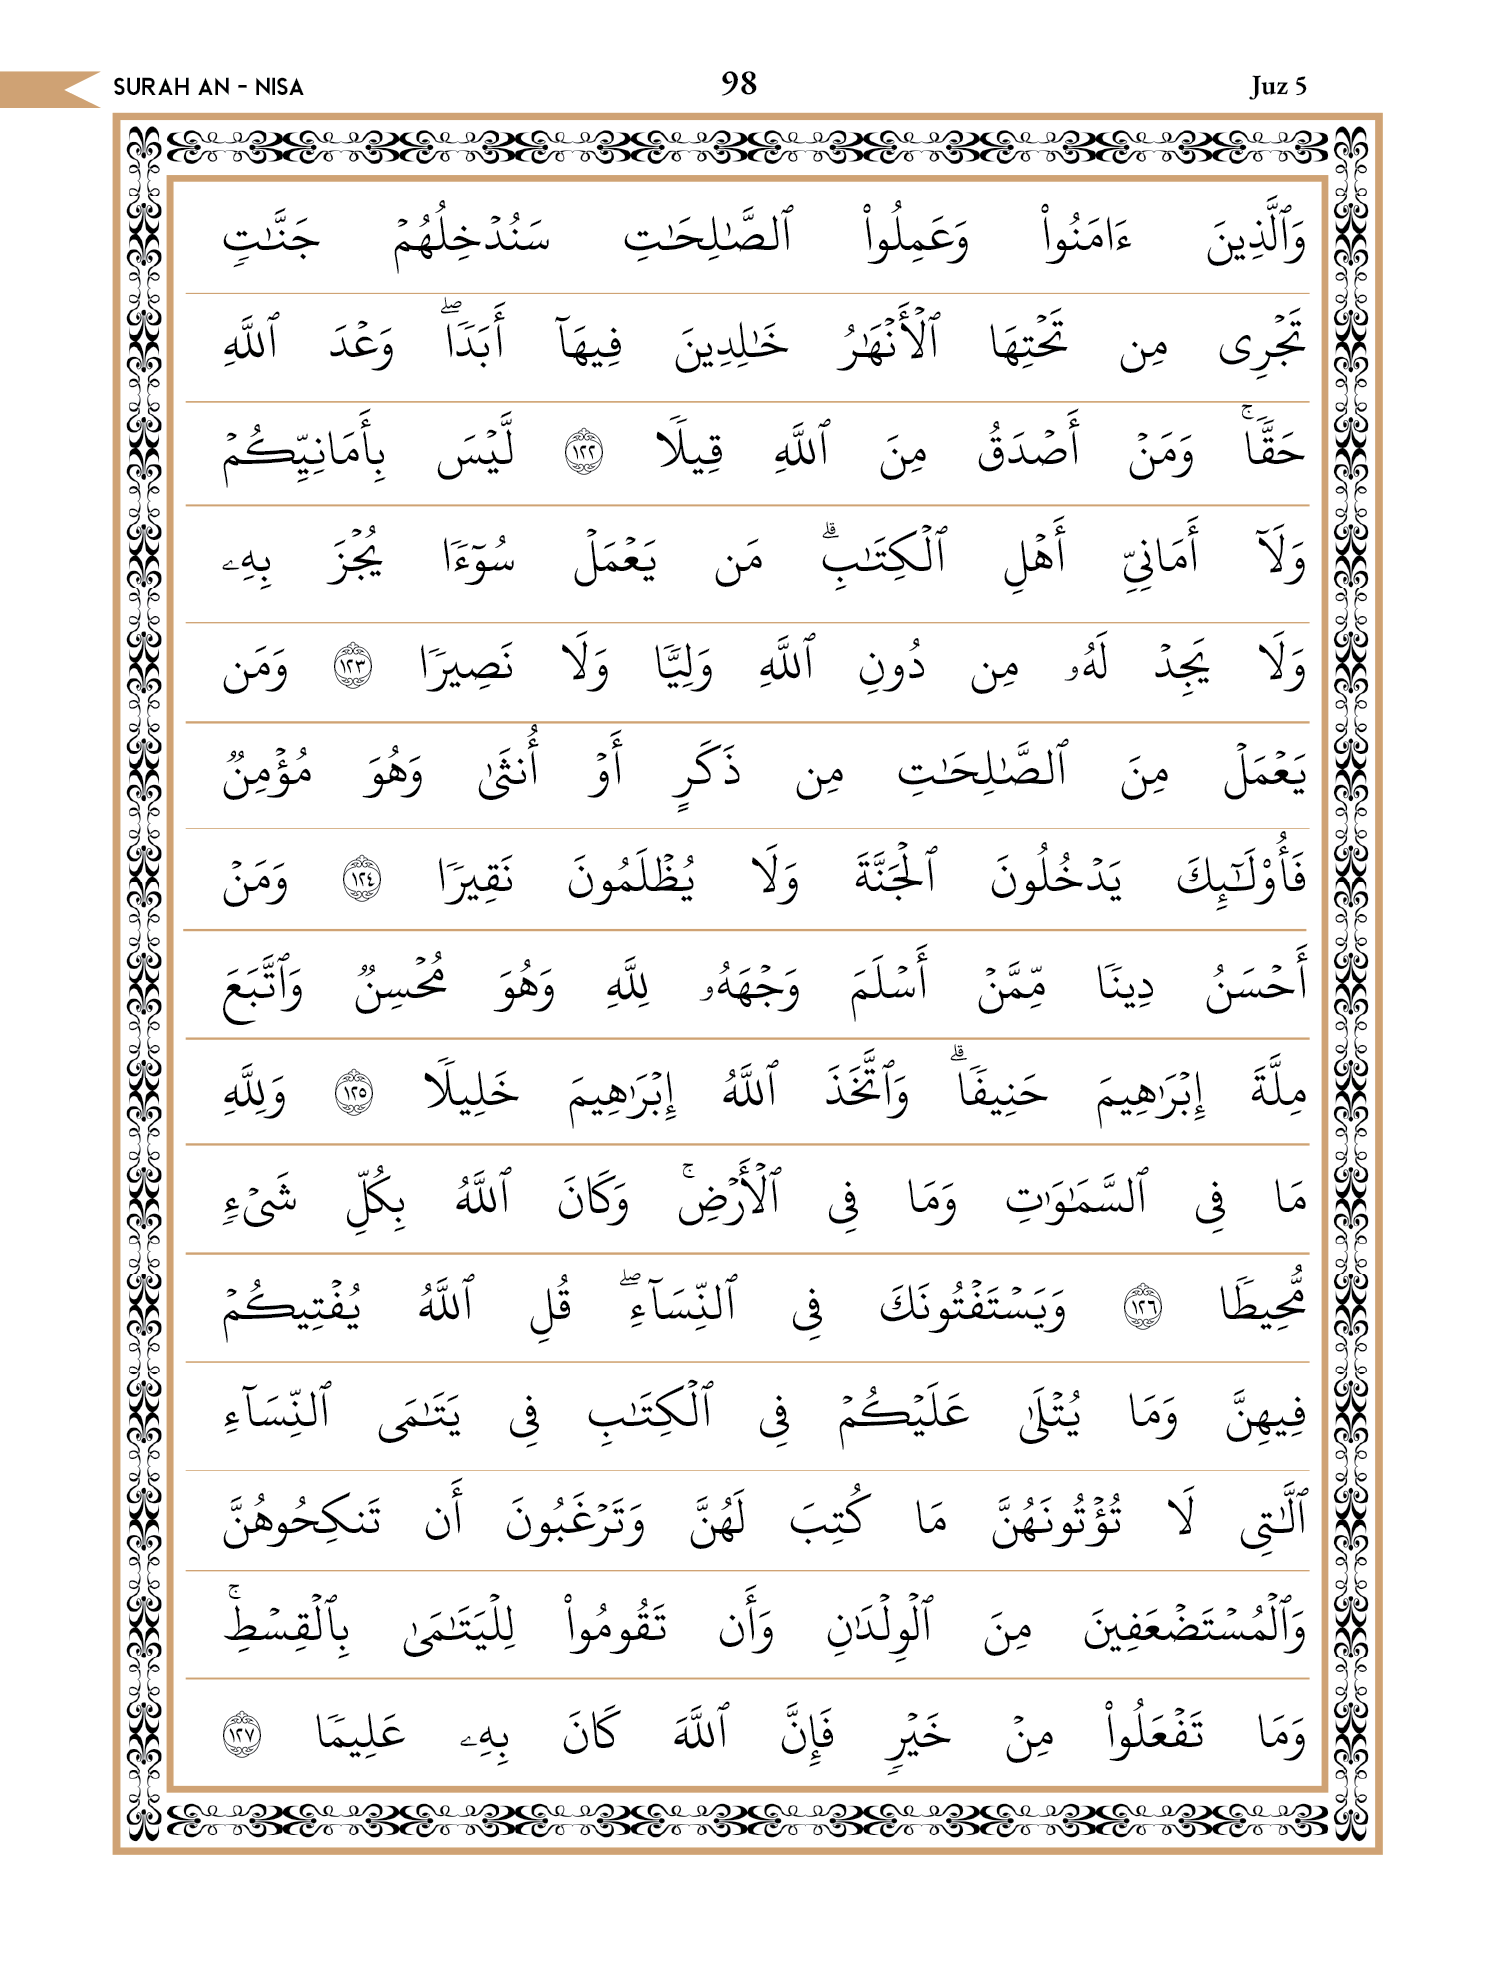 SURAH AN - NISA 98 Juz 5
وَٱلَّذِينَ ءَامَنُوا۟ وَعَمِلُوا۟ ٱلصَّـٰلِحَـٰتِ سَنُدْخِلُهُمْ جَنَّـٰتٍ
تَجْرِى مِن تَحْتِهَا ٱلْأَنْهَـٰرُ خَـٰلِدِينَ فِيهَآ أَبَدًا ۖ وَعْدَ ٱللَّهِ
حَقًّا ۚ وَمَنْ أَصْدَقُ مِنَ ٱللَّهِ قِيلًا ١٢٢ لَّيْسَ بِأَمَانِيِّكُمْ
وَلَآ أَمَانِىِّ أَهْلِ ٱلْكِتَـٰبِ ۗ مَن يَعْمَلْ سُوٓءًا يُجْزَ بِهِۦ
وَلَا يَجِدْ لَهُۥ مِن دُونِ ٱللَّهِ وَلِيًّا وَلَا نَصِيرًا ١٢٣ وَمَن
يَعْمَلْ مِنَ ٱلصَّـٰلِحَـٰتِ مِن ذَكَرٍ أَوْ أُنثَىٰ وَهُوَ مُؤْمِنٌ
فَأُو۟لَـٰٓئِكَ يَدْخُلُونَ ٱلْجَنَّةَ وَلَا يُظْلَمُونَ نَقِيرًا ١٢٤ وَمَنْ
أَحْسَنُ دِينًا مِّمَّنْ أَسْلَمَ وَجْهَهُۥ لِلَّهِ وَهُوَ مُحْسِنٌ وَٱتَّبَعَ
مِلَّةَ إِبْرَٰهِيمَ حَنِيفًا ۗ وَٱتَّخَذَ ٱللَّهُ إِبْرَٰهِيمَ خَلِيلًا ١٢٥ وَلِلَّهِ
مَا فِى ٱلسَّمَـٰوَٰتِ وَمَا فِى ٱلْأَرْضِ ۚ وَكَانَ ٱللَّهُ بِكُلِّ شَىْءٍ
مُّحِيطًا ١٢٦ وَيَسْتَفْتُونَكَ فِى ٱلنِّسَآءِ ۖ قُلِ ٱللَّهُ يُفْتِيكُمْ
فِيهِنَّ وَمَا يُتْلَىٰ عَلَيْكُمْ فِى ٱلْكِتَـٰبِ فِى يَتَـٰمَى ٱلنِّسَآءِ
ٱلَّـٰتِى لَا تُؤْتُونَهُنَّ مَا كُتِبَ لَهُنَّ وَتَرْغَبُونَ أَن تَنكِحُوهُنَّ
وَٱلْمُسْتَضْعَفِينَ مِنَ ٱلْوِلْدَٰنِ وَأَن تَقُومُوا۟ لِلْيَتَـٰمَىٰ بِٱلْقِسْطِ ۚ
وَمَا تَفْعَلُوا۟ مِنْ خَيْرٍ فَإِنَّ ٱللَّهَ كَانَ بِهِۦ عَلِيمًا ١٢٧